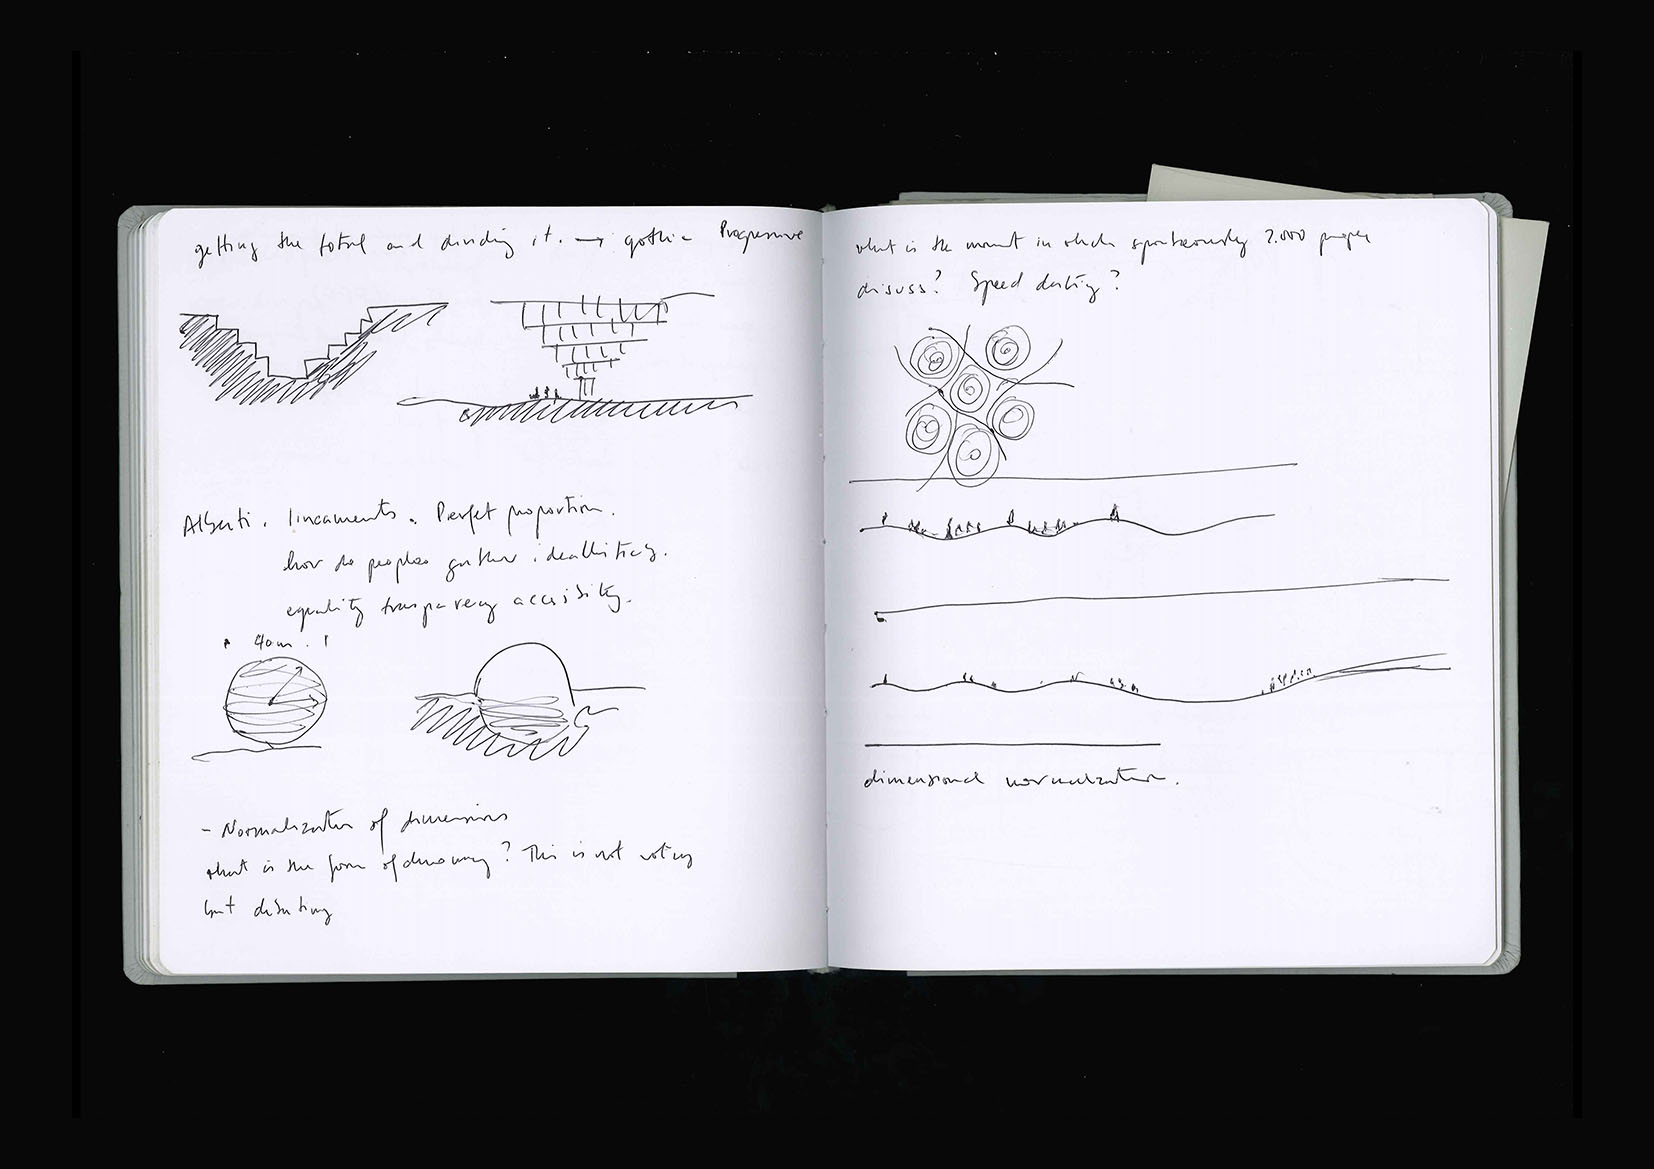 getting the total and dividing it. → gothic Progressive
Alberti. lineaments. Perfect proportion.
how do peoples gather idealisticly.
equality trasparency
40m.
- Normalization of dimensions
what is the form of democracy? This is not voting
but debating
what is the moment in which spontaneously 2.000
discuss? Speed dating?
dimensional normalization.